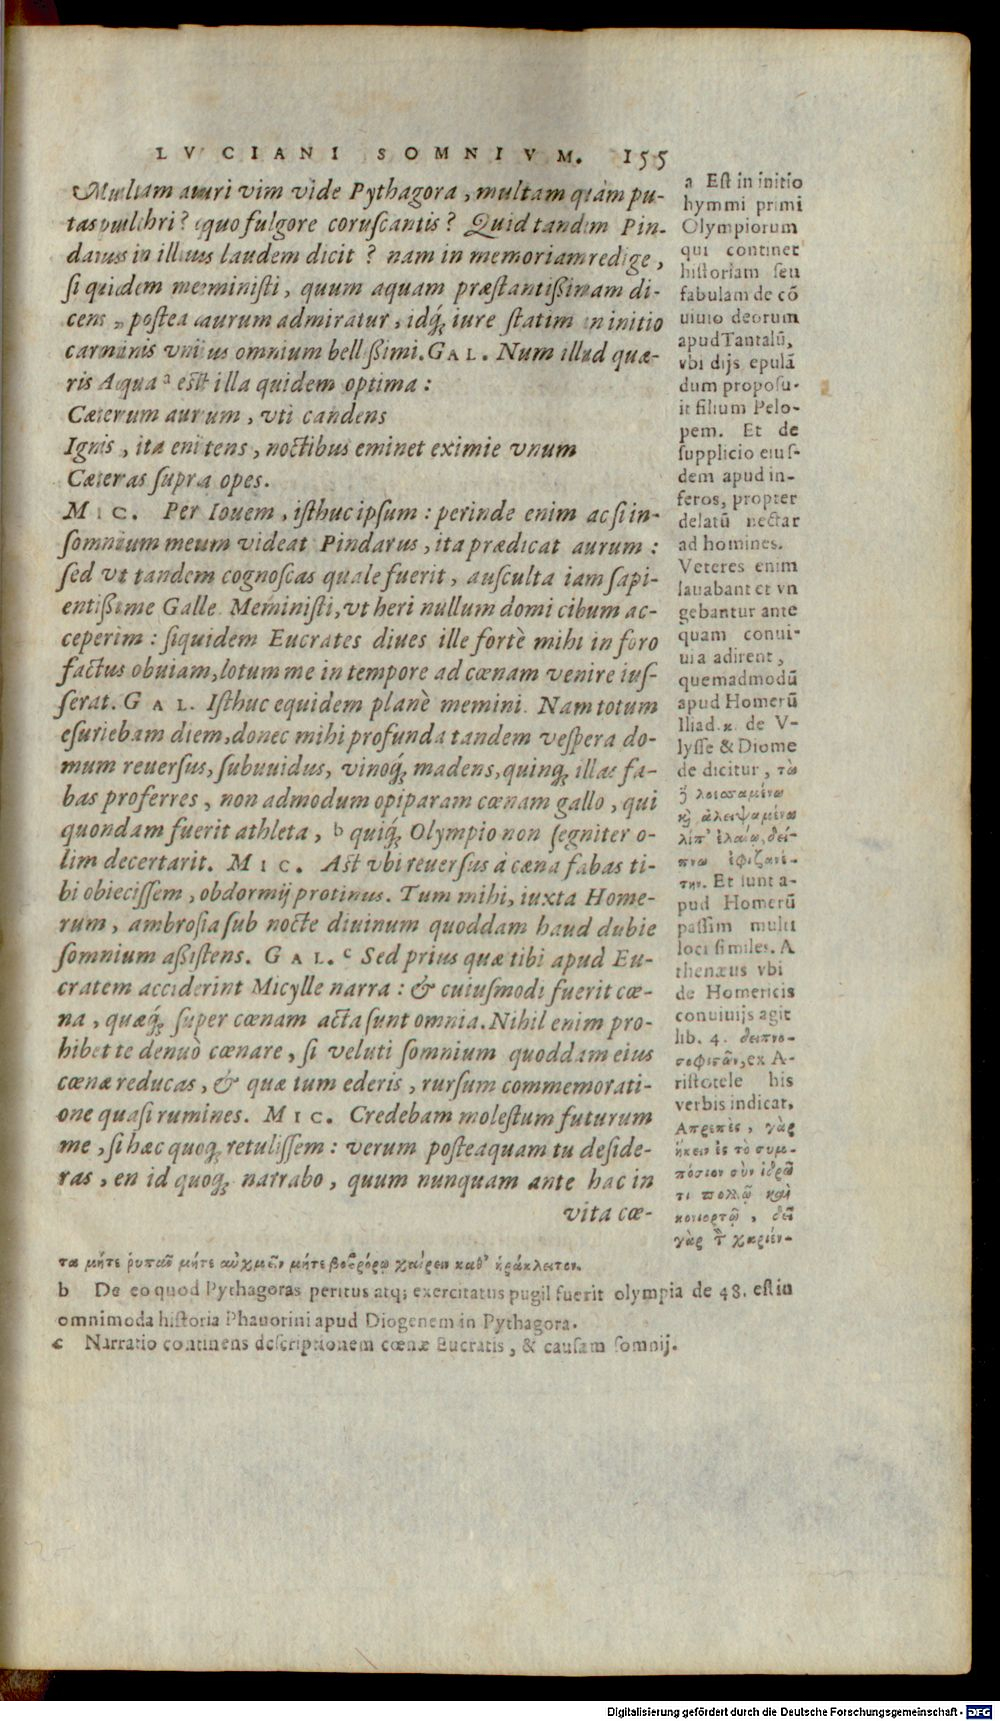 LVCIANI SOMNIVM. 155
Multam auri vim vide Pythagora, multam quàm pu-
tas pulchri? quo fulgore coruscantis? Quid tandem Pin-
darus in illius laudem dicit? nam in memoriam redige,
si quidem meministi, quum aquam præstantißimam di-
cens, postea aurum admiratur, idq́; iure statim in initio
carminis vnius omnium bellißimi. GAL. Num illud quæ-
ris Aqua ᵃ est illa quidem optima:
Cæterum aurum, vti candens
Ignis, ita enitens, noctibus eminet eximie vnum
Cæteras supra opes.
MIC. Per Iouem, isthuc ipsum: perinde enim ac si in-
somnium meum videat Pindarus, ita prædicat aurum:
sed vt tandem cognoscas quale fuerit, ausculta iam sapi-
entißime Galle. Meministi, vt heri nullum domi cibum ac-
ceperim: siquidem Eucrates diues ille fortè mihi in foro
factus obuiam, lotum me in tempore ad cœnam venire ius-
serat. GAL. Isthuc equidem planè memini. Nam totum
esuriebam diem, donec mihi profunda tandem vespera do-
mum reuersus, subuuidus, vinoq́; madens, quinq; illas fa-
bas proferres, non admodum opiparam cœnam gallo, qui
quondam fuerit athleta, ᵇ quiq́; Olympio non segniter o-
lim decertarit. MIC. Ast vbi reuersus à cœna fabas ti-
bi obiecissem, obdormij protinus. Tum mihi, iuxta Home-
rum, ambrosia sub nocte diuinum quoddam haud dubie
somnium aßistens. GAL. ᶜ Sed prius quæ tibi apud Eu-
cratem acciderint Micylle narra: & cuiusmodi fuerit cœ-
na, quæq́; super cœnam acta sunt omnia. Nihil enim pro-
hibet te denuò cœnare, si veluti somnium quoddam eius
cœnæ reducas, & quæ tum ederis, rursum commemorati-
one quasi rumines. MIC. Credebam molestum futurum
me, si hæc quoq; retulissem: verum posteaquam tu deside-
ras, en id quoq; narrabo, quum nunquam ante hac in
vita cœ-
a Est in initio
hymmi primi
Olympiorum
qui continet
historiam seu
fabulam de cō
uiuio deorum
apud Tantalū,
vbi dijs epulā
dum proposu-
it filium Pelo-
pem. Et de
supplicio eius-
dem apud in-
feros, propter
delatū nectar
ad homines.
Veteres enim
lauabant et vn
gebantur ante
quam conui-
uia adirent,
quemadmodū
apud Homerū
Iliad. κ. de V-
lysse & Diome
de dicitur, τὼ
λοεσσαμένω
κỳ ἀλειψαμένω
λίπ' ἐλαίῳ, δεί-
πνῳ ἐφιζανέ-
την. Et sunt a-
pud Homerū
passim multi
loci similes. A
thenæus vbi
de Homericis
conuiuijs agit
lib. 4. δειπνο-
σοφισῶν, ex A-
ristotele his
verbis indicat.
Απρεπὲς, γὰρ
ἥκειν ἐς τὸ συμ-
πόσιον σὺν ἱδρῶ
τι πολλῷ καὶ
κονιορτῷ, δεῖ
γὰρ τ χαρίεν-
τα μήτε ῥυπᾶν μήτε αὐχμεῖν μήτε βορβόρῳ χαίρειν καθ' ἡράκλειτον.
b De eo quod Pythagoras peritus atq; exercitatus pugil fuerit olympia de 48. est in
omnimoda historia Phauorini apud Diogenem in Pythagora.
c Narratio continens descriptionem cœnæ Eucratis, & causam somnij.
Digitalisierung gefördert durch die Deutsche Forschungsgemeinschaft - DFG